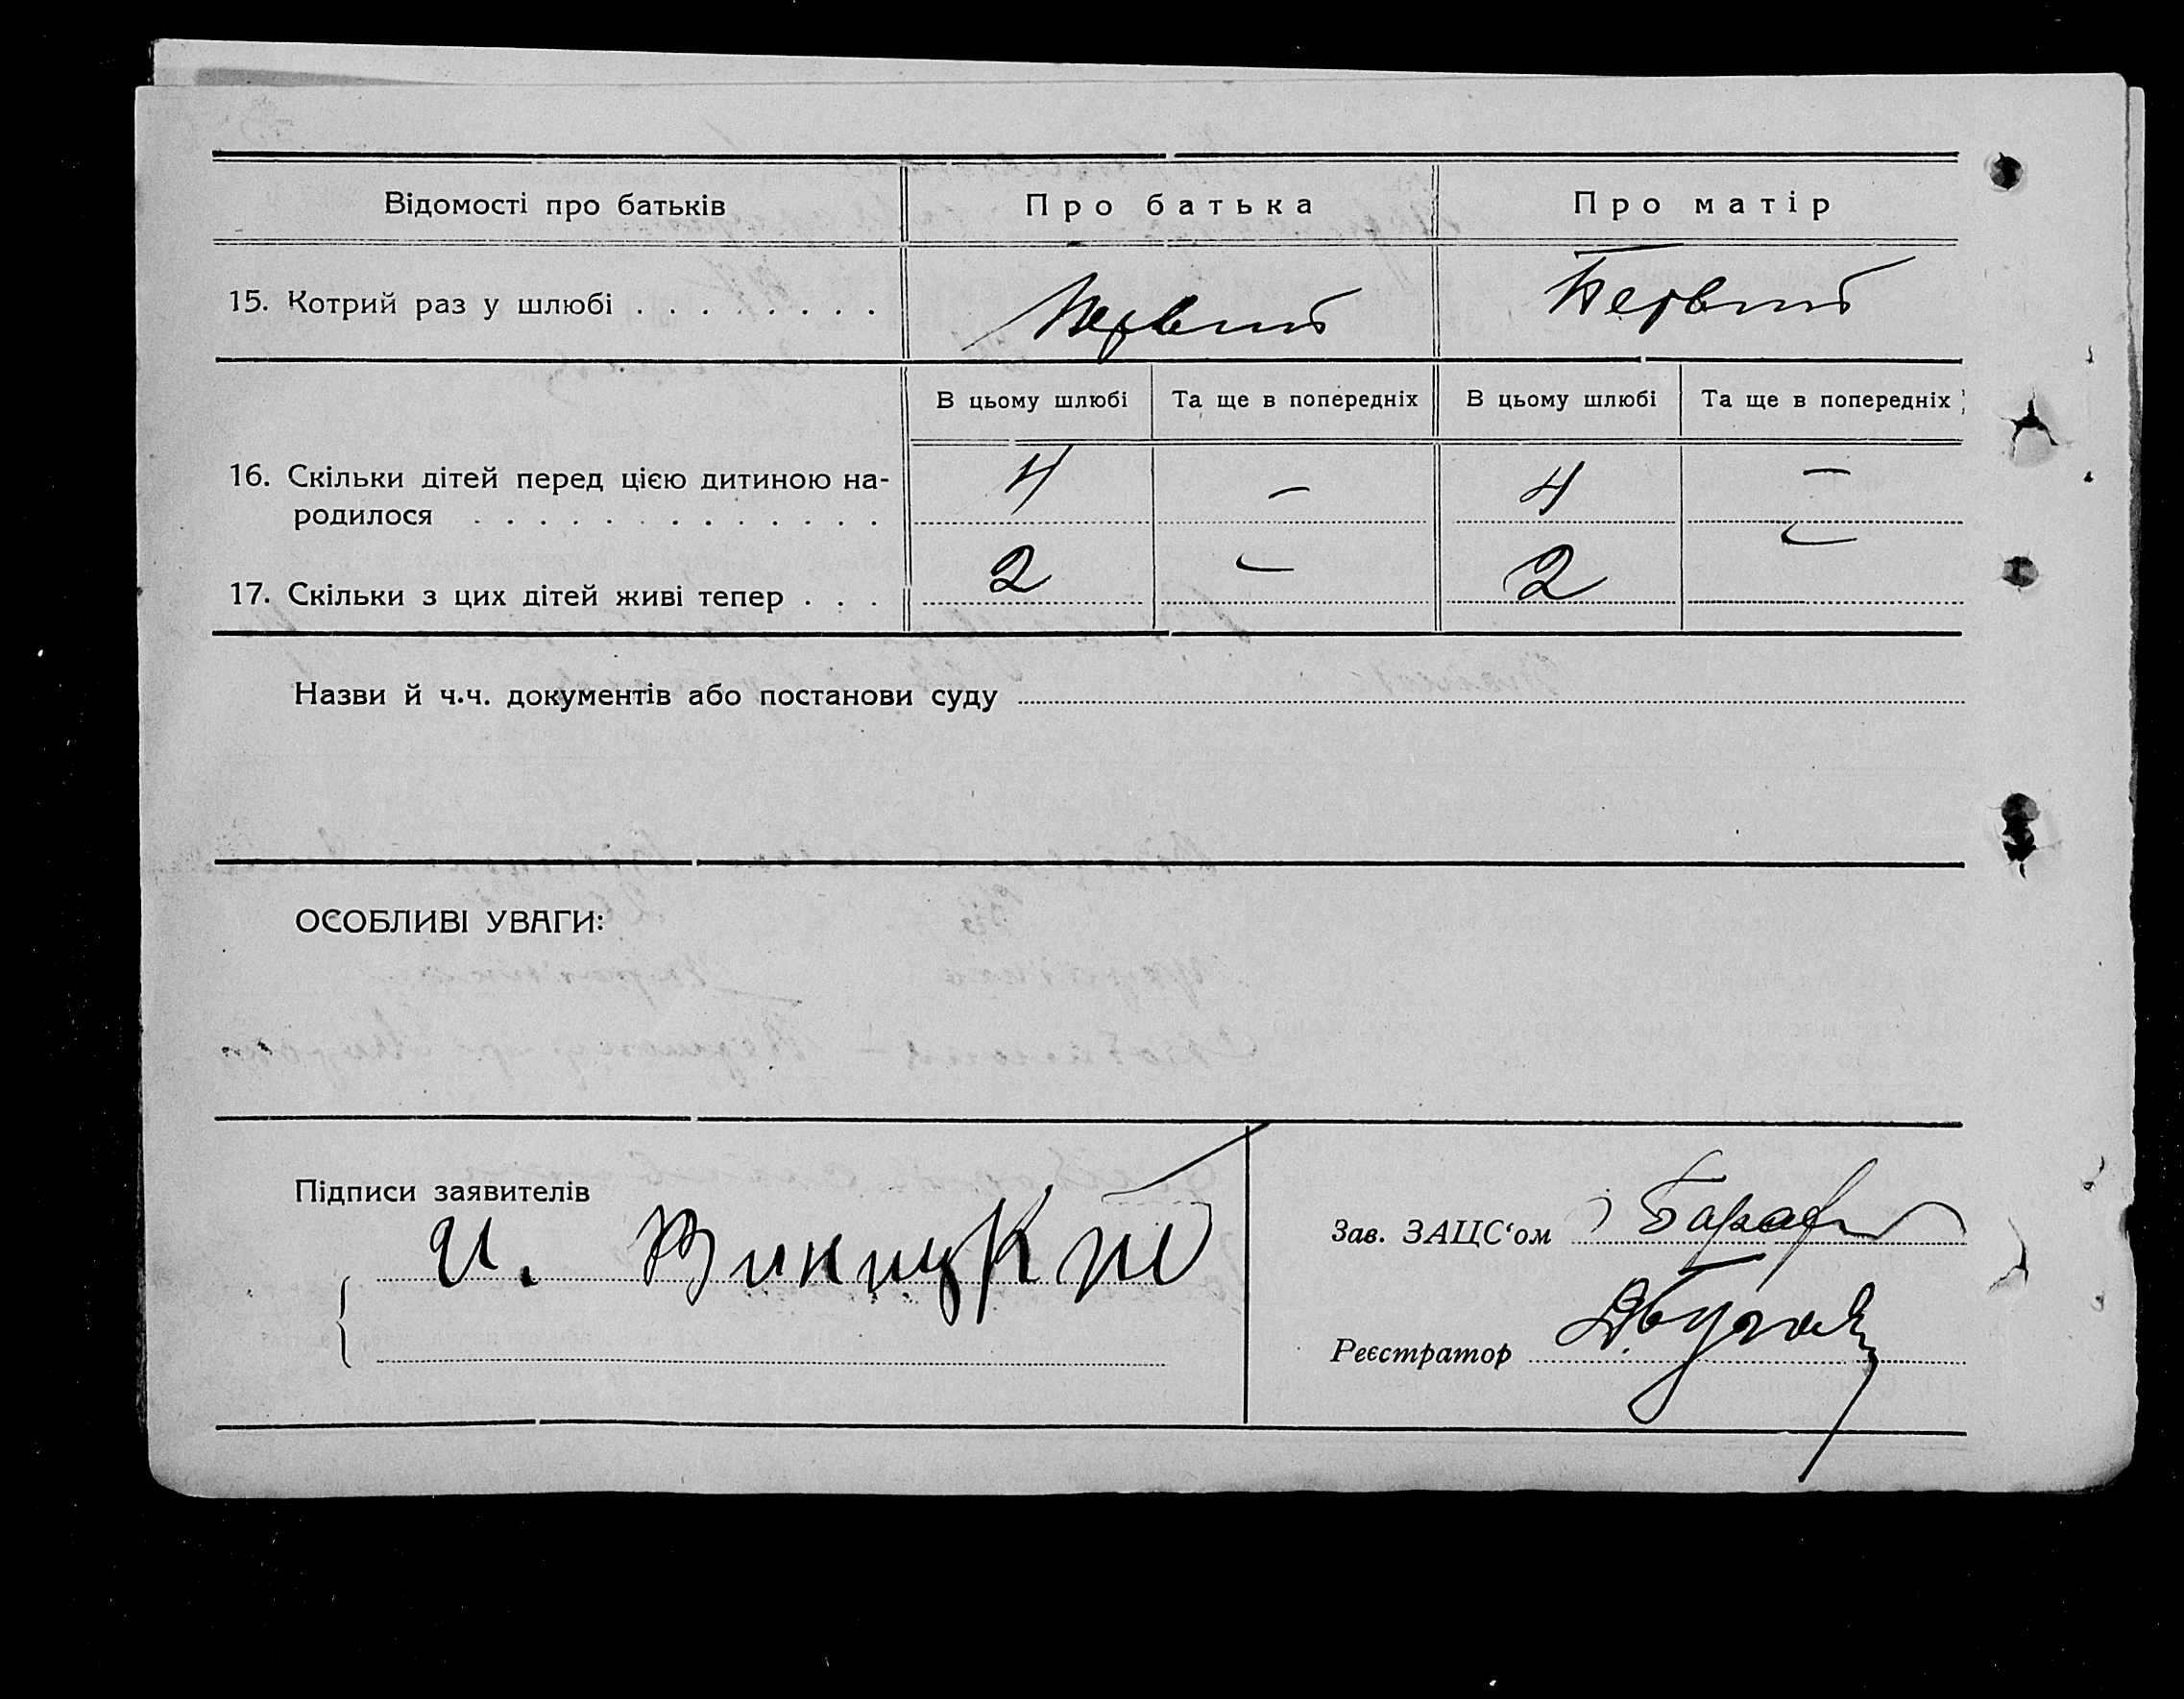 Відомості про батьків Про батька Про матір
15. Котрий раз у шлюбі . . . . . . . . Первий Первий
В цьому шлюбі Та ще в попередніх В цьому шлюбі Та ще в попередніх
16. Скільки дітей перед цією дитиною на-
родилося . . . . . . . . . . . . . 4 – 4 –
17. Скільки з цих дітей живі тепер . . . 2 – 2 –
Назви й ч.ч. документів або постанови суду
ОСОБЛИВІ УВАГИ:
Підписи заявителів
И. Виницкий
Зав. ЗАЦС‘ом
Реєстратор